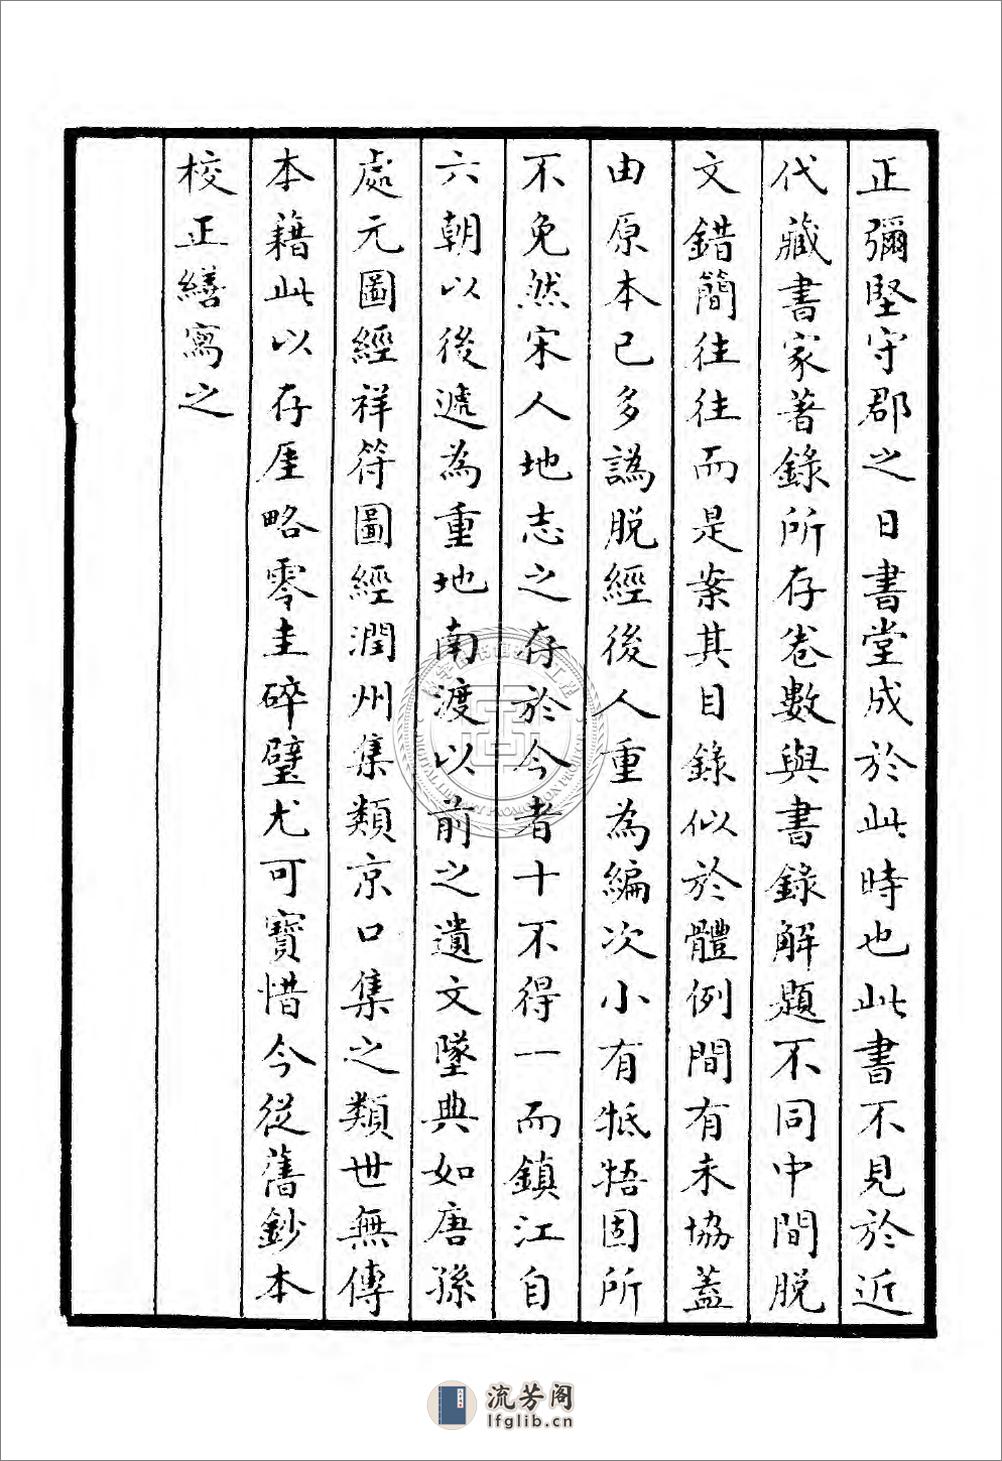 正彌堅守郡之日書堂成於此時也此書不見於近
代藏書家著錄所存卷數與書錄解題不同中間脫
文錯簡往往而是案其目錄似於體例間有未協蓋
由原本已多譌脫經後人重為編次小有牴牾固所
不免然宋人地志之存於今者十不得一而鎮江自
六朝以後遞為重地南渡以前之遺文墜典如唐孫
處元圖經祥符圖經潤州集類京口集之類世無傳
本藉此以存厓略零圭碎璧尤可寶惜今從舊鈔本
校正繕寫之
流芳阁
lfglib.cn